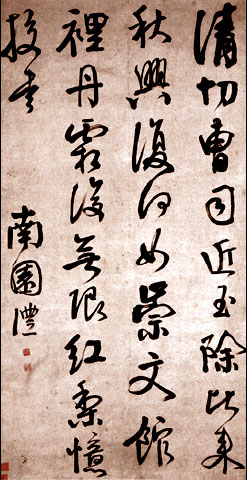 清切曹司近玉除比來
秋興復何如崇文館
裡丹霜後無限紅棃憶
校書
南園灃